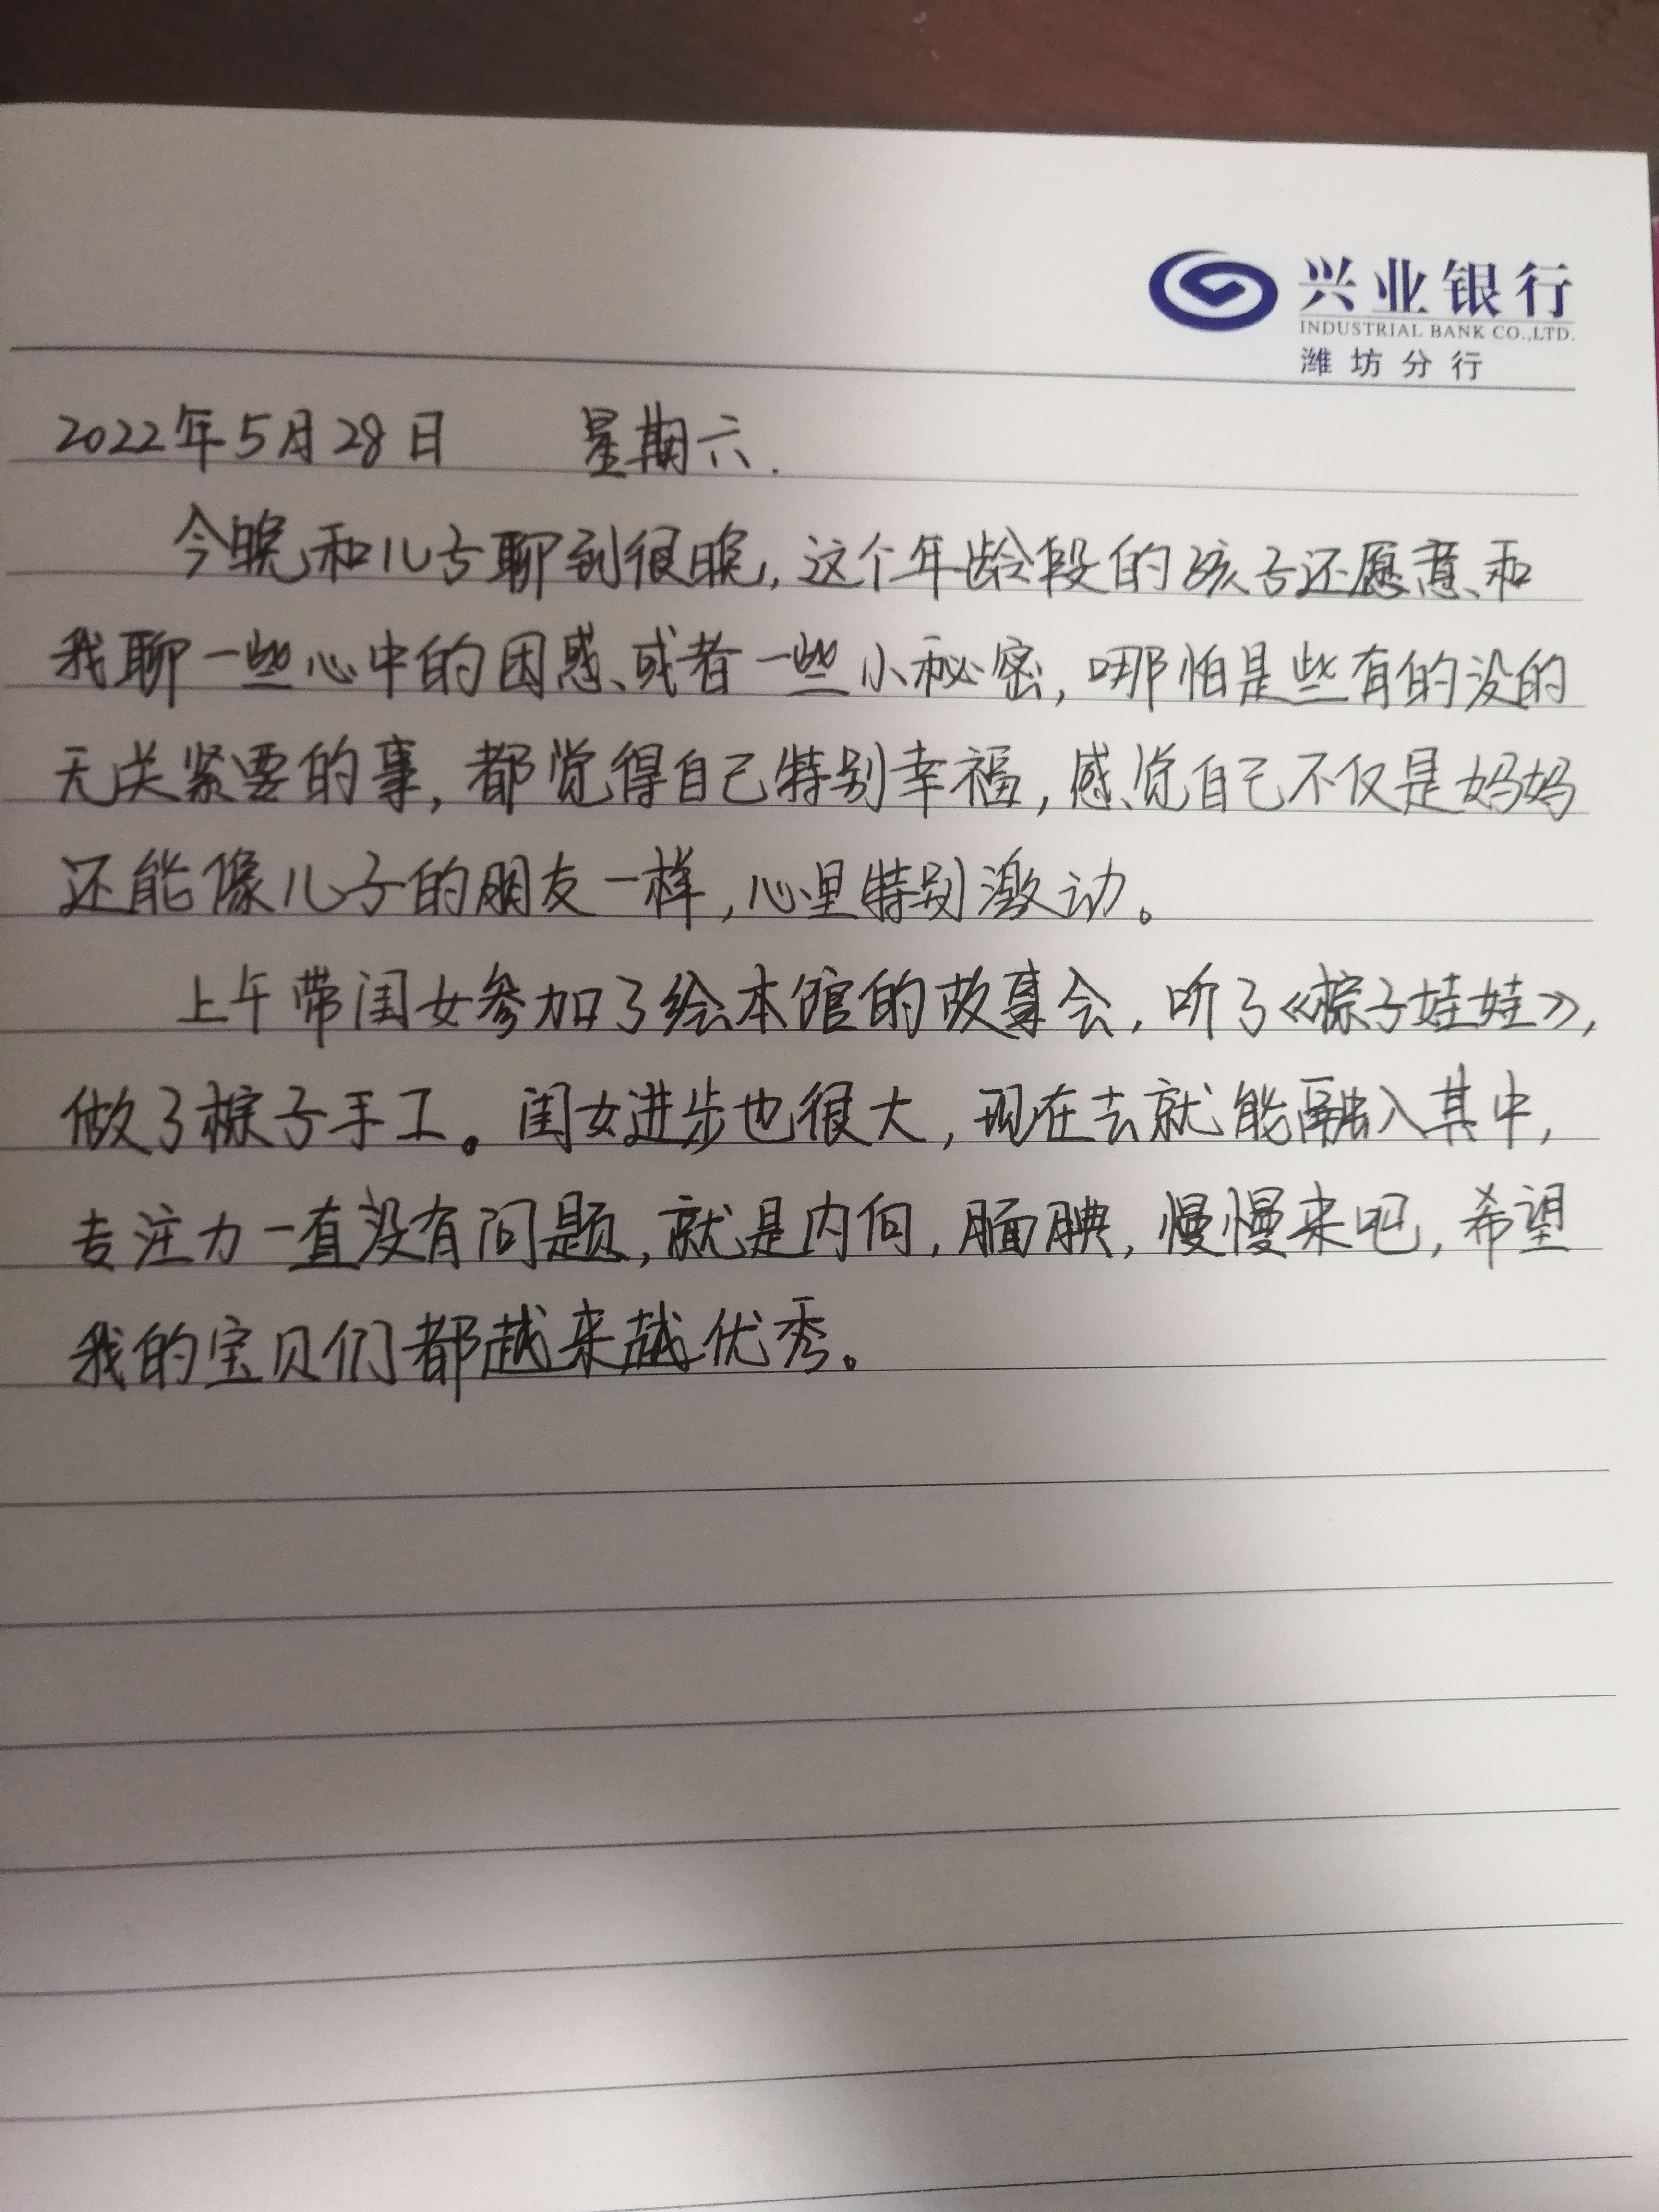 兴业银行
INDUSTRIAL BANK CO.,LTD.
潍坊分行
2022年5月28日 星期六.
今晚和儿子聊到很晚,这个年龄段的孩子还愿意和
我聊一些心中的困惑或者一些小秘密,哪怕是些有的没的
无关紧要的事,都觉得自己特别幸福,感觉自己不仅是妈妈
还能像儿子的朋友一样,心里特别激动。
上午带闺女参加了绘本馆的故事会,听了《粽子娃娃》,
做了粽子手工。闺女进步也很大,现在去就能融入其中,
专注力一直没有问题,就是内向,腼腆,慢慢来吧,希望
我的宝贝们都越来越优秀。